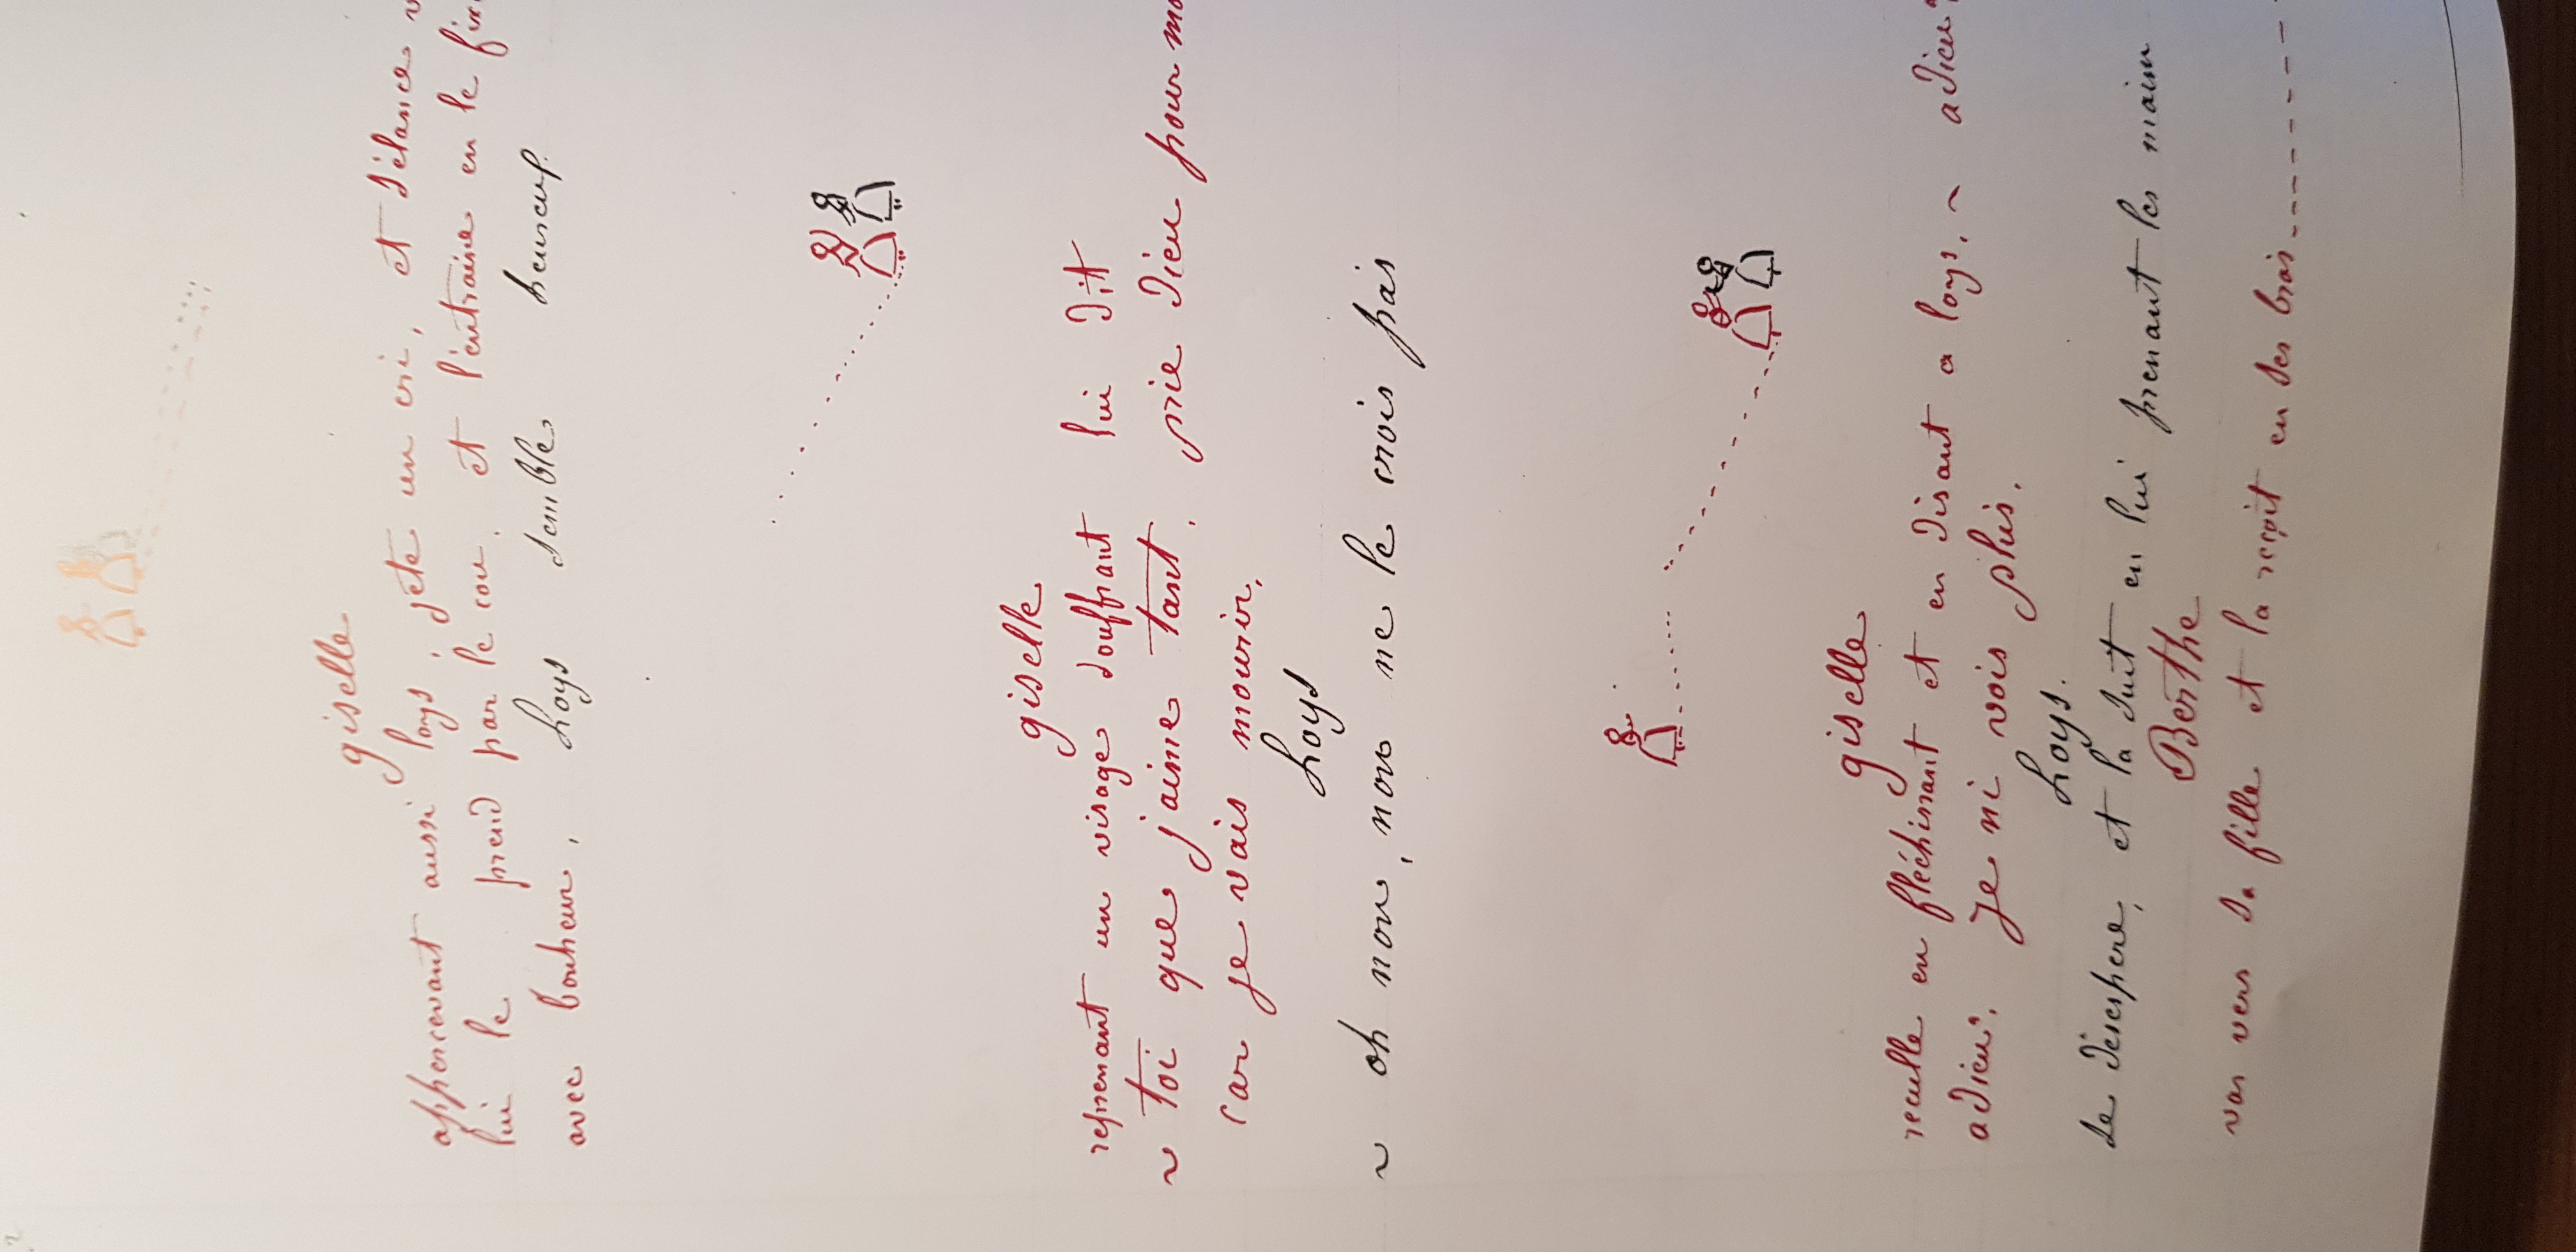 giselle
appercevant aussi loys, jete un cri, et s'élance
lui le prend par le cou, et l'entraine en le
avec bonheur, Loys semble heureux.
giselle
reprenant un visage souffrant lui dit
~ toi que j'aime tant, prie Dieu pour
car je vais mourir,
Loys
~ oh non, non ne le crois pas
giselle
recule en fléchissant et en disant a loys, ~ adieu,
adieu, je ni vois plus,
Loys.
se désespere, et la suit en lui prenant les mains
Berthe
van vers sa fille et la reçoit en ses bras